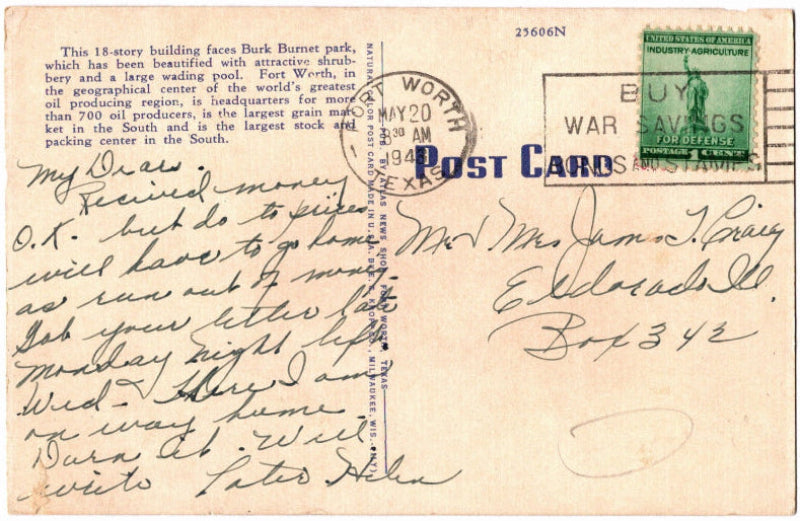 25606N
This 18-story building faces Burk Burnet park,
which has been beautified with attractive shrub-
bery and a large wading pool. Fort Worth, in
the geographical center of the world's greatest
oil producing region, is headquarters for more
than 700 oil producers, is the largest grain mar-
ket in the South and is the largest stock and
packing center in the South.
FORT WORTH
MAY 20
8 30 AM
194
TEXAS
UNITED STATES OF AMERICA
INDUSTRY AGRICULTURE
FOR DEFENSE
POSTAGE 1 CENT
BUY
WAR SAVINGS
BONDS AND STAMPS
POST CARD
NATURAL COLOR POST CARD MADE IN U.S.A. BY E. C. KROPP CO., MILWAUKEE, WIS. (NY)
FOR BY ATLAS NEWS SHOP, FORT WORTH, TEXAS
My Dears.
Recived money
O.K. but do to prices
will have to go home
as run out of money.
Got your letter late
Monday night left
Wed - There I am
on way home.
Darn it. Will
write Later Helen
Mr & Mrs James T. Craig
Eldorado Ill.
Box 342